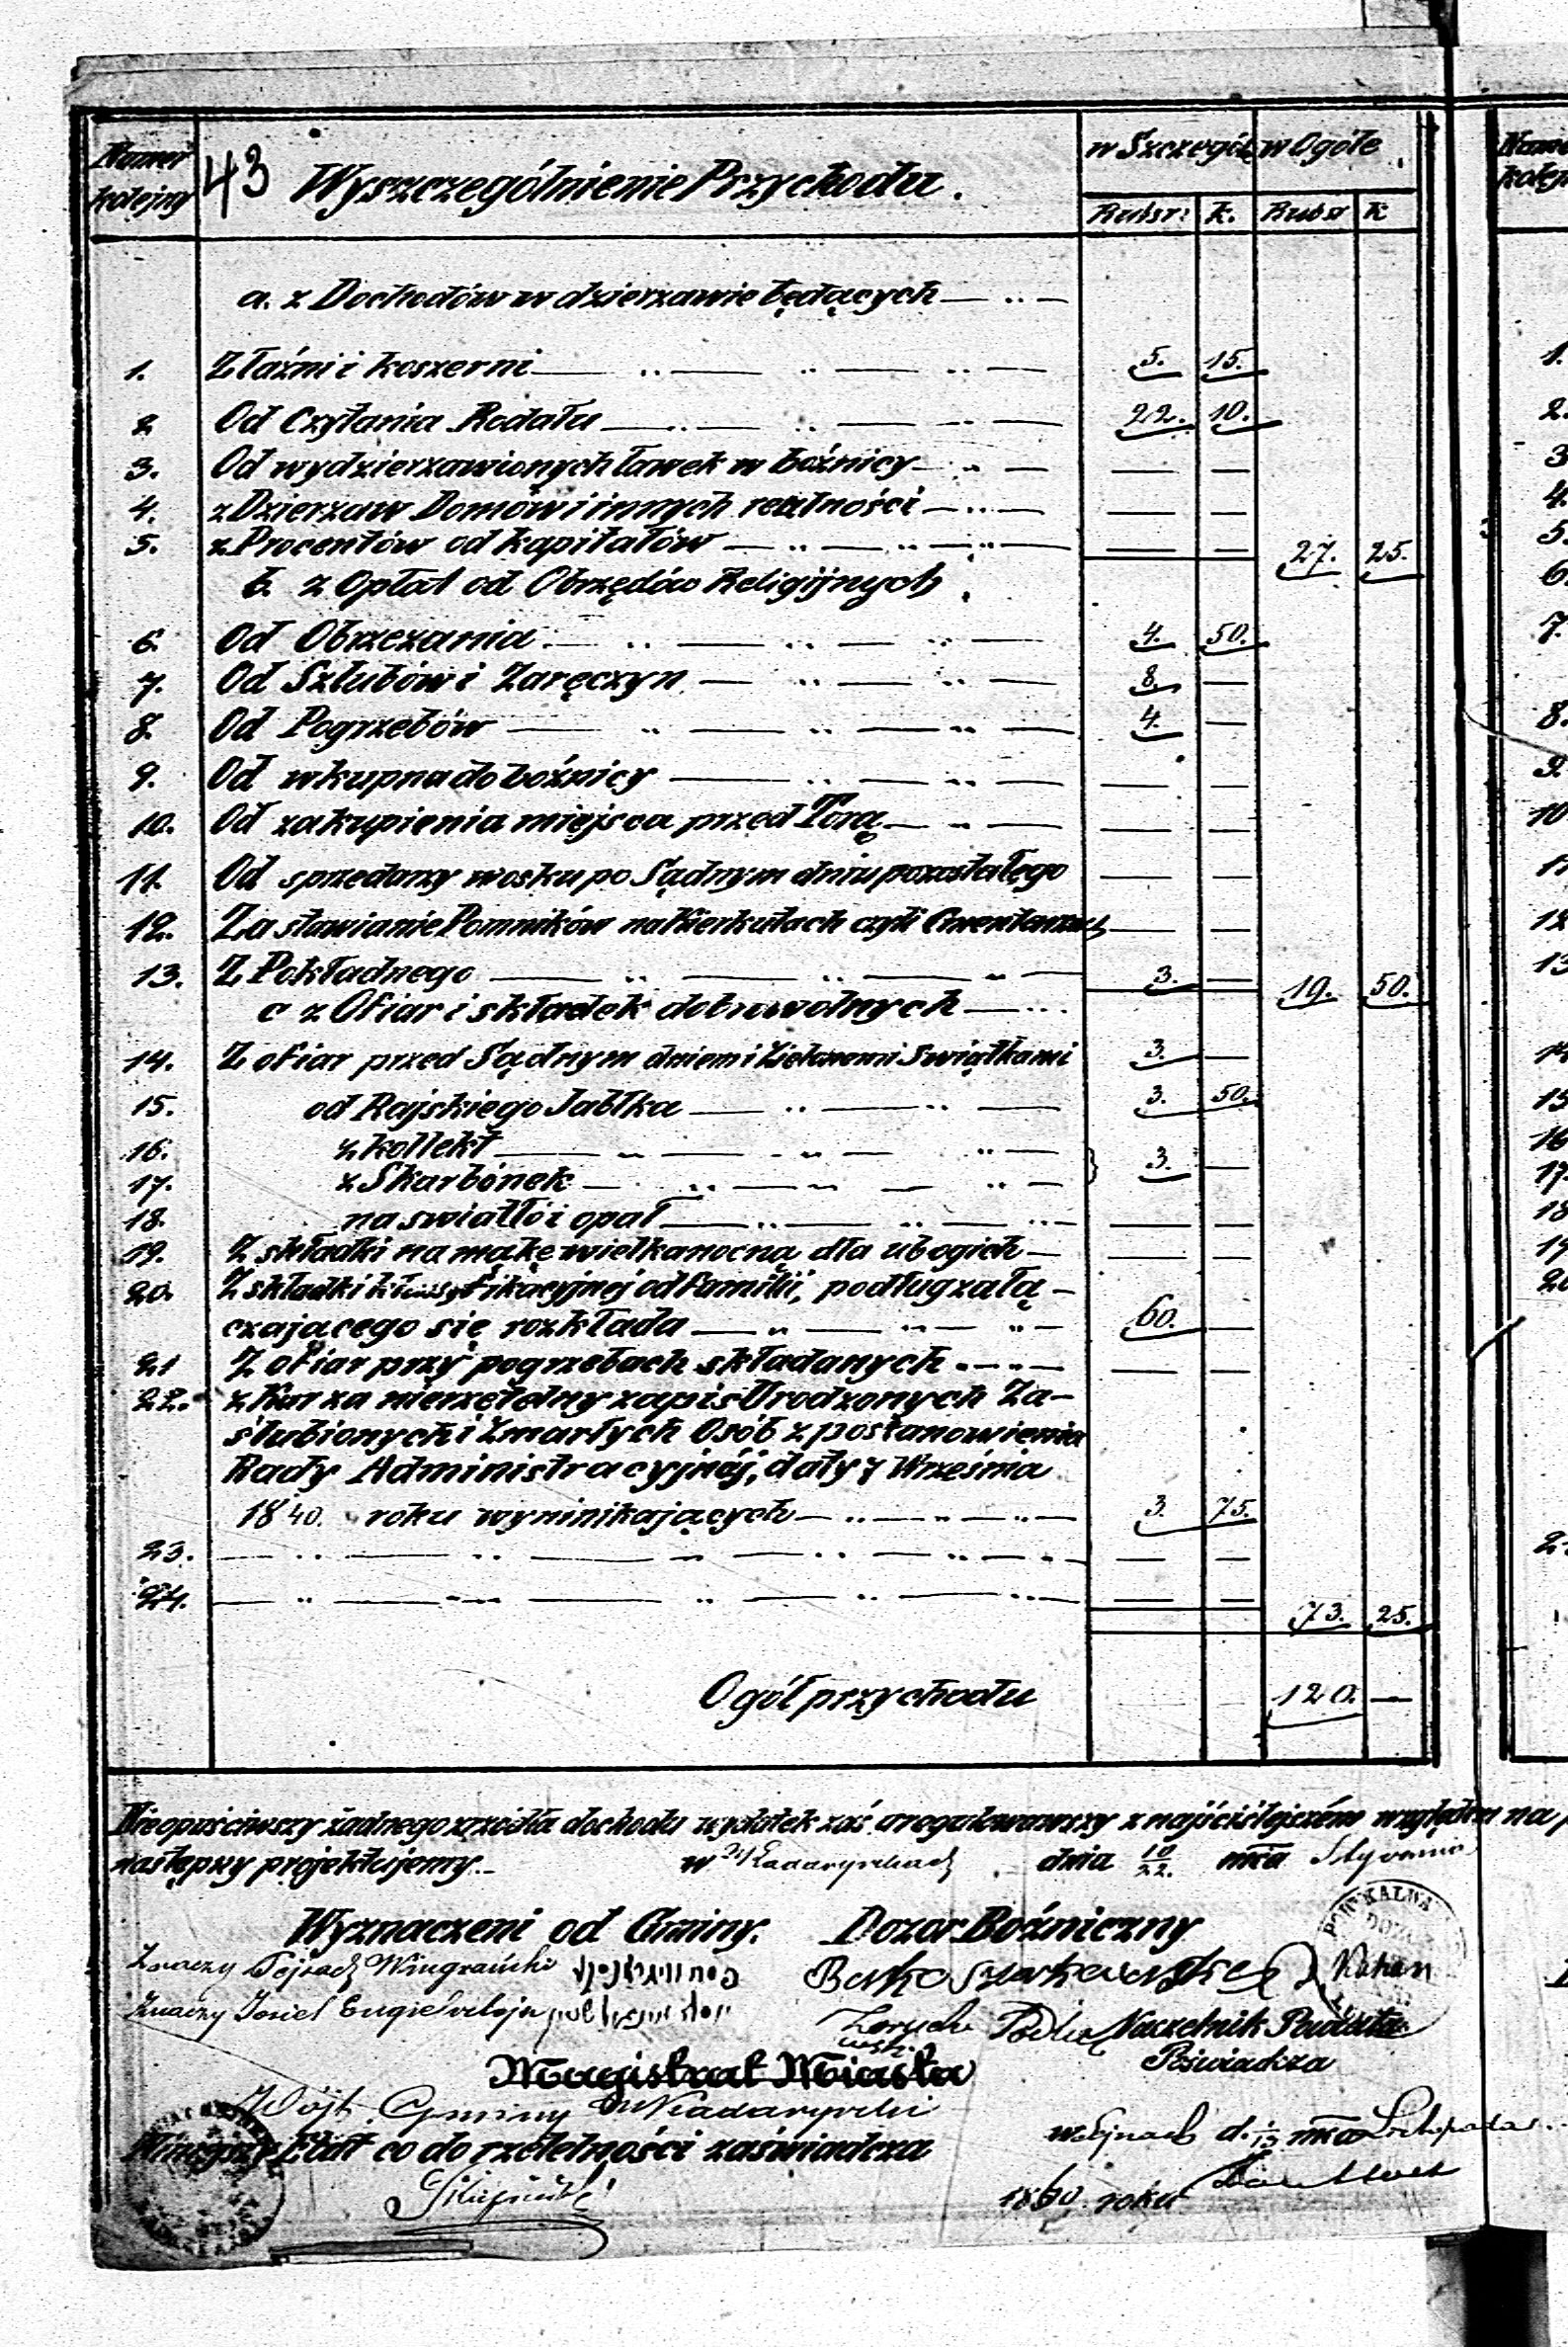 Numer kolejny 43 Wyszczególnienie Przychodu. w Szczegól. w Ogóle
Rubsr: k. Rubsr k
a. z Dochodów w dzierzawie będących
1. Z łaźni i koszerni 5. 15.
2 Od Czytania Rodału 22. 10.
3. Od wydzierzawionych ławek w bóźnicy — —
4. z Dzierzaw Domów i innych realności — —
5. z Procentów od kapitałów — — 27. 25.
b. z Opłat od Obrzędów Religijnych
6. Od Obrzezania 4. 50.
7. Od Szlubów i Zaręczyn 8. —
8. Od Pogrzebów 4. —
9. Od wkupna do bóźnicy — —
10. Od zakupienia miejsca przed Torą — —
11. Od sprzedarzy wosku po Sądnym dniu pozostałego — —
12. Za stawianie Pomników na Kierkutach czyli Cmentarzu — —
13. Z Pokładnego 3. — 19. 50.
c z Ofiar i składek dobrowolnych
14. Z ofiar przed Sądnym dniem i Zielonemi Swiątkami 3. —
15. od Rajskiego Jabłka 3. 50.
16. z kollekt
17. z Skarbónek } 3. —
18. na swiatło i opał — —
19. Z składki na mąkę wielkanocną dla ubogich — —
20. Z składki klassyfikacyjnej od familii, podług załą-
czającego się rozkłada 60. —
21 Z ofiar przy pogrzebach składanych — —
22. z Kar za nierzetelny zapis Urodzonych Za-
ślubionych i Zmarłych Osób z postanowienia
Rady Administracyjnéj, daty 7 Września
1840. roku wyninikających 3. 75.
23. — —
24. — — 73. 25.
Ogół przychodu 120. —
Nieopuściwszy żadnego zrzódła dochodu wydatek zaś uregulowawszy z najściślejszém względem na
następny projektujemy. w dnia 10/22. mca Stycznia
Wyznaczeni od Gminy. Dozor Bóźniczny
Znaczy Josiel
Naczelnik Powiatu
Poświadcza
Magistrat Miasta
Wójt Gminy
Niniejszy Etat co do rzetelności zaświadcza
w Sejnach d. mca Listopada
1860. roku